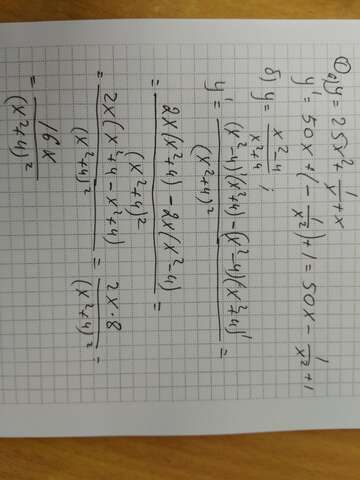 ① a) y = 25x² + 1/x + x
y' = 50x + (-1/x²) + 1 = 50x - 1/x² + 1
б) y = (x²-4)/(x²+4) ;
y' = ((x²-4)'(x²+4) - (x²-4)(x²+4)')/(x²+4)² =
= (2x(x²+4) - 2x(x²-4))/(x²+4)² =
= (2x(x²+4-x²+4))/(x²+4)² = (2x·8)/(x²+4)² =
= 16x/(x²+4)²